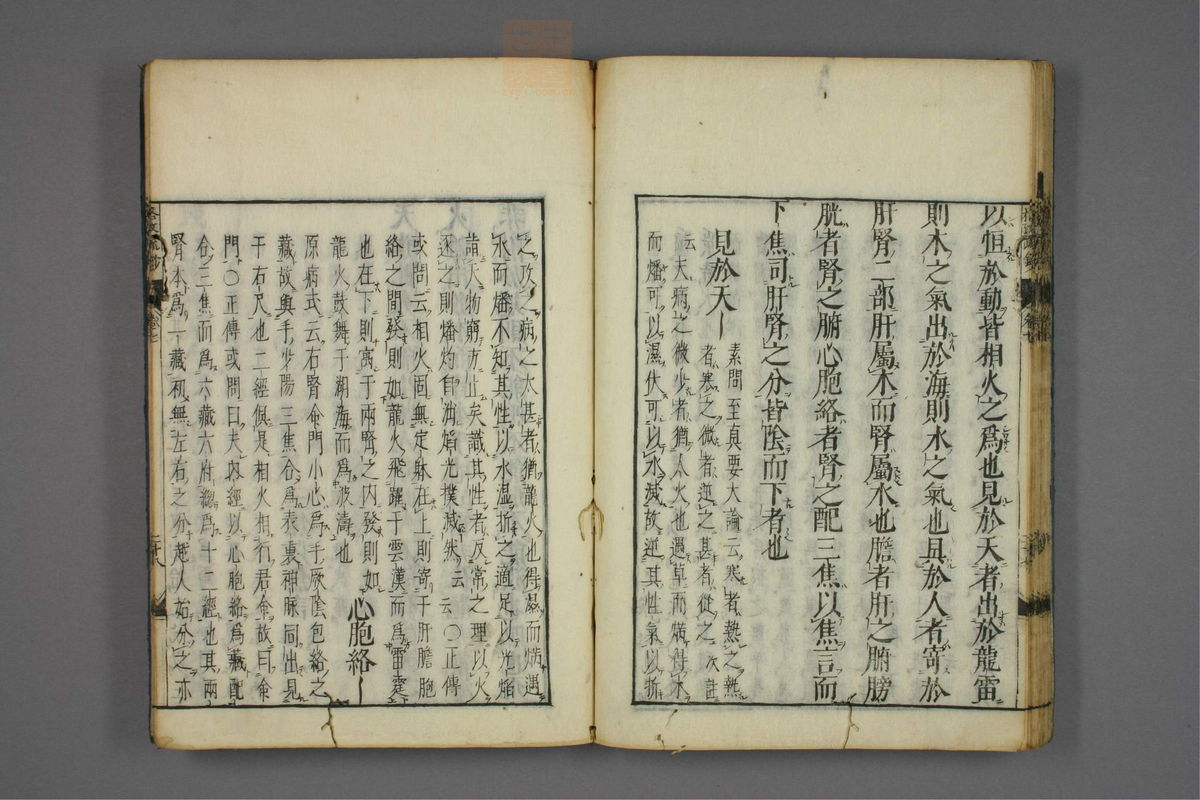 以恒於動皆相火之為也見於天者出於龍雷
則木之氣出於海則水之氣也具於人者寄於
肝腎二部肝屬木而腎屬水也膽者肝之腑膀
胱者腎之腑心胞絡者腎之配三焦以焦言而
下焦司肝腎之分皆陰而下者也
見於天｜
素問至真要大論云寒者熱之熱
者寒之微者逆之甚者從之 次註
云夫病之微少者猶人火也遇草而焫得木
而燔可以濕伏可以水滅故逆其性氣以折
之攻之病之大甚者猶龍火也得濕而焫遇
水而燔不知其性以水濕折之適足以光焔
詣天物窮方止矣識其性者反常之理以火
逐之則燔灼自消焔光撲滅然云云○正傳
或問云相火固無定躰在上則寄于肝膽胞
絡之間發則如龍火飛躍于雲漢而為雷霆
也在下則寓于兩腎之内發則如
龍火鼓舞于湖海而為波濤也
心胞絡｜
原病式云右腎命門小心為手厥陰包絡之
藏故與手少陽三焦合為表裏神脉同出見
于右尺也二經俱是相火相行君命故曰命
門○正傳或問曰夫内經以心胞絡為藏配
合三焦而為六藏六府總為十二經也其兩
腎本為一藏初無左右之分越人始分之亦